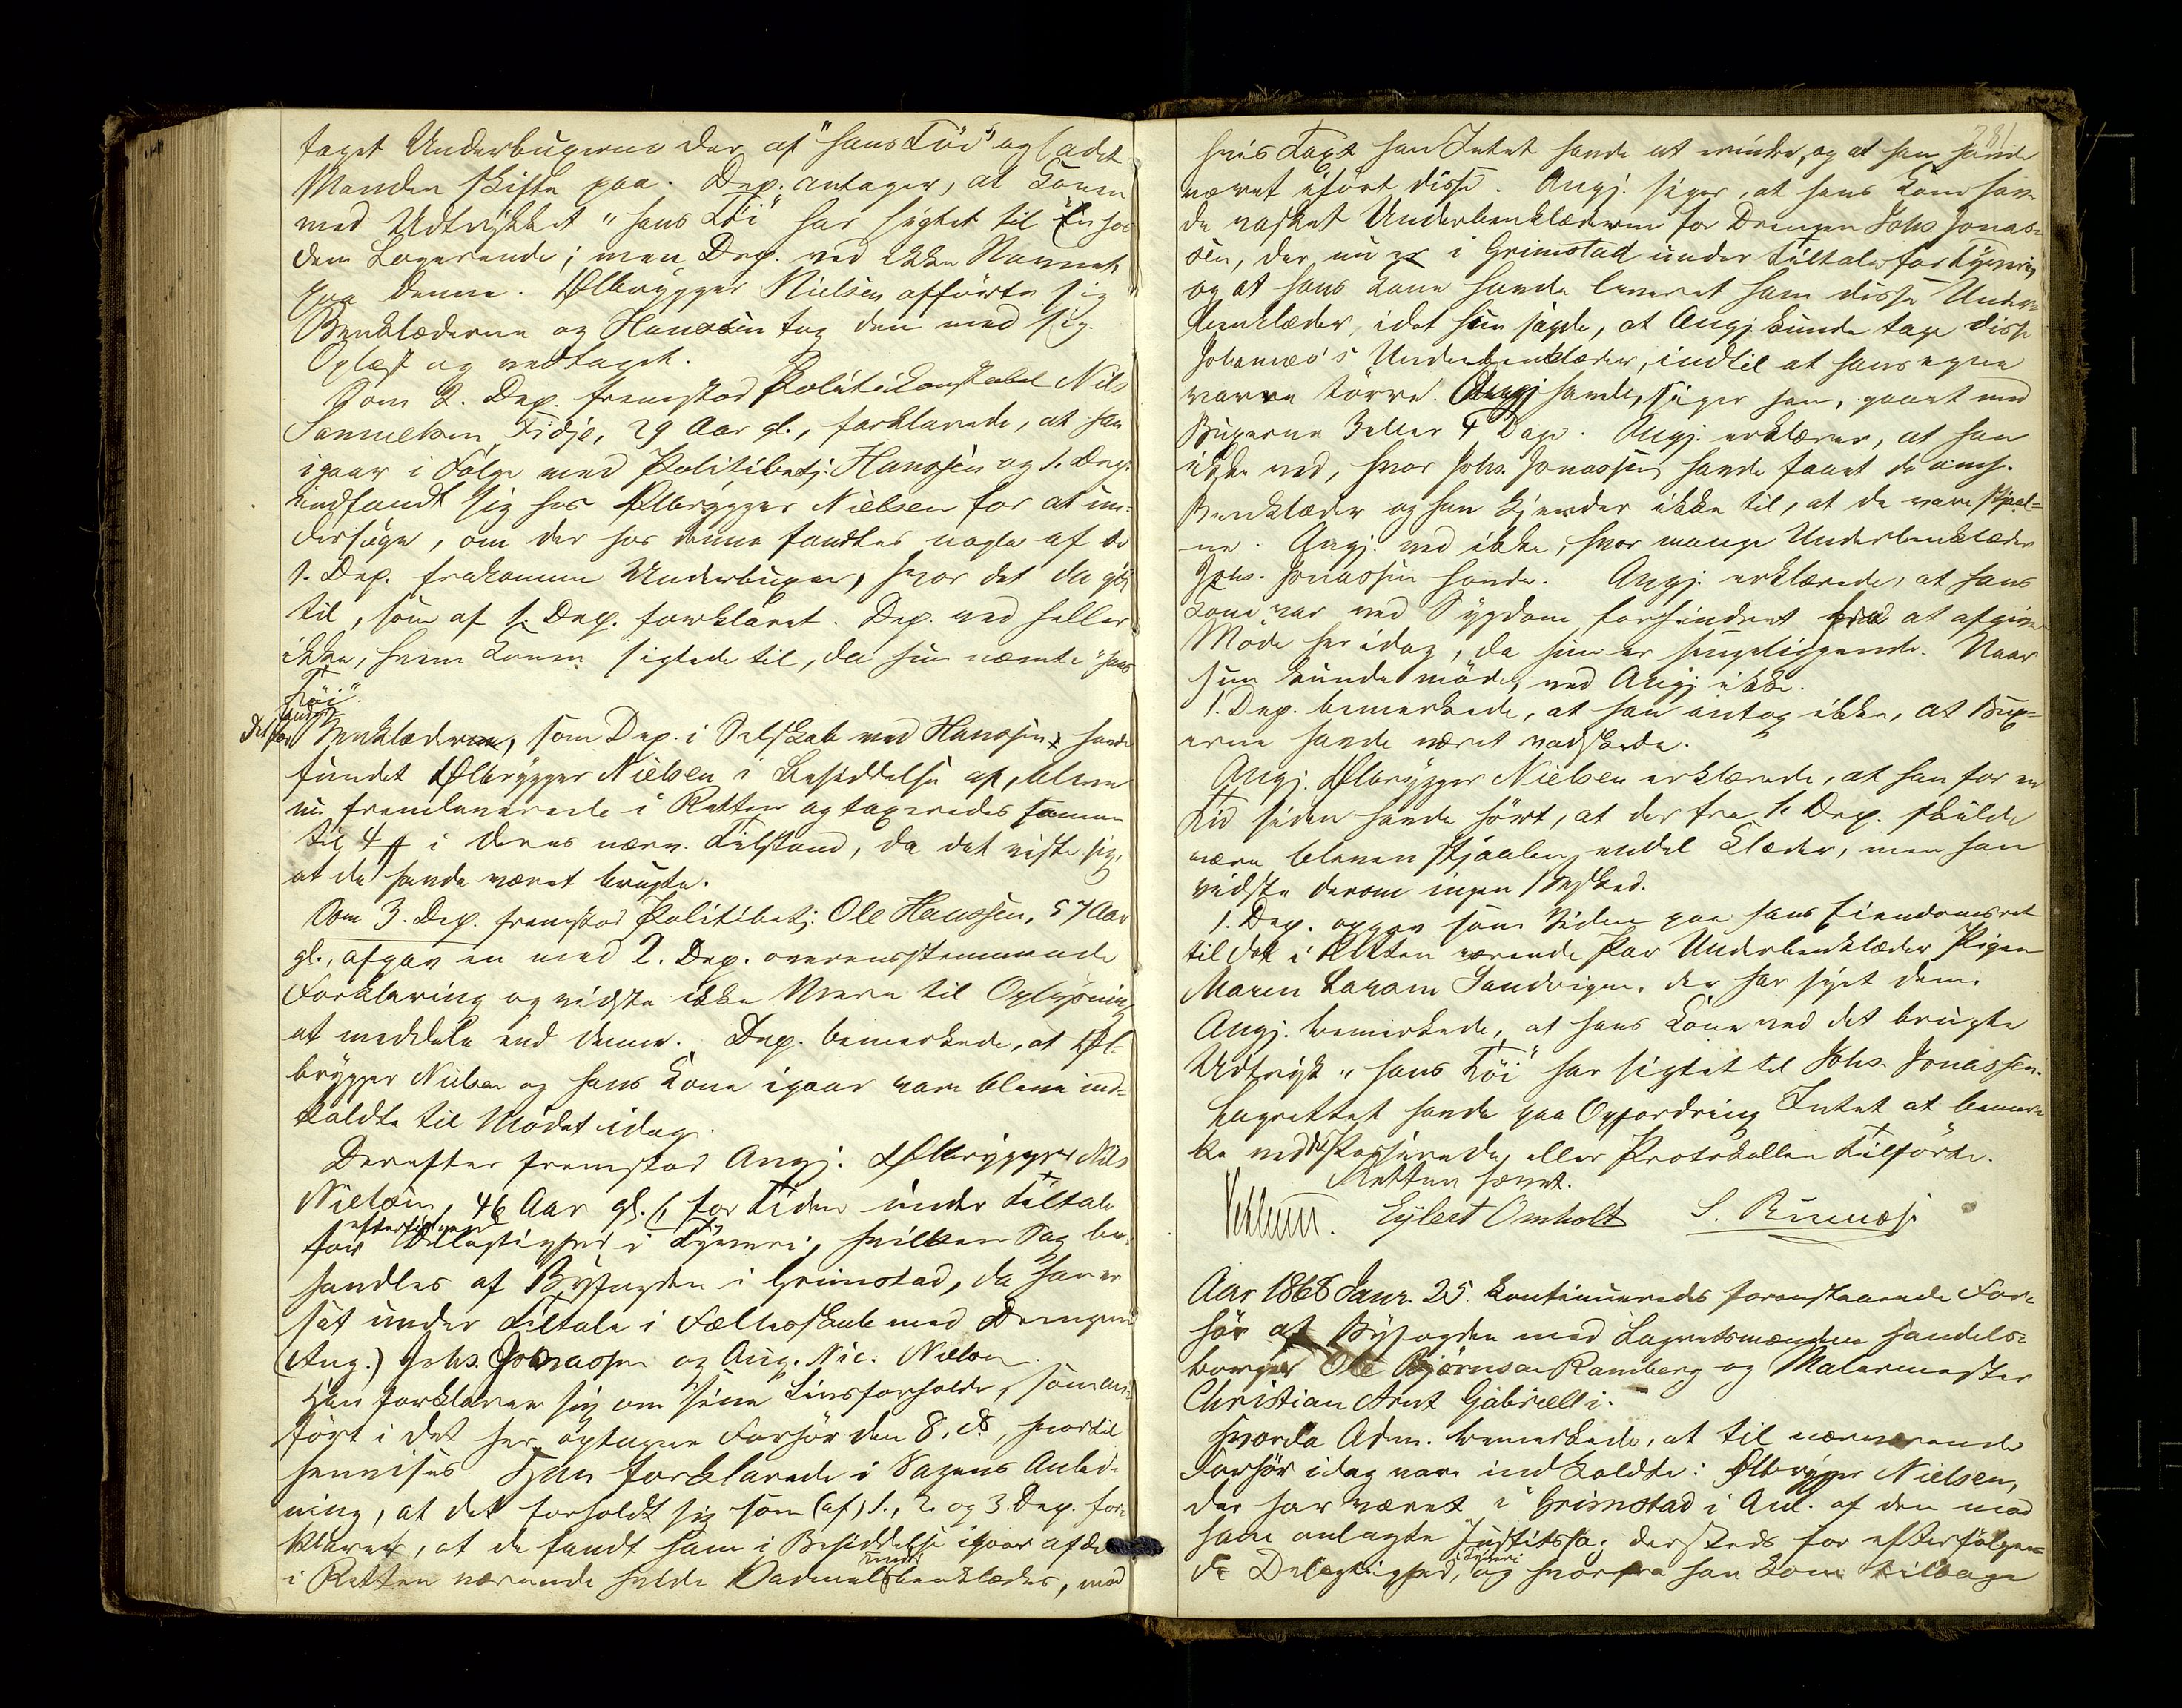 taget Underbuxerne der af "hans Töi" og ladet
Manden skifte paa. Dep. antager, at Konen
med Udtrykket "hans Töi" har sigtet til En hos
dem Logerende; men Dep. ved ikke Navnet
paa denne. Ølbrygger Nielsen afførte sig
Benklæderne og Hanssen tog dem med sig.
Oplæst og vedtaget.
Som 2. Dep. fremstod Politikonstabel Nils
Samuelsen Fidje, 29 Aar gl., forklarede, at han
igaar i Følge med Politibetj. Hanssen og 1. Dep.
indfandt sig hos Ølbrygger Nielsen for at un-
dersøge, om der hos denne fandtes nogle af de
1. Dep. frakomne Underbuxer, hvor det da gik
til, som af 1. Dep. forklaret. Dep. ved heller
ikke, hvem Konen sigtede til, da hun nævnte "hans
Töi".
Det par Under
Benklæder, som Dep. i Selskab med Hanssen havde
fundet Ølbrygger Nielsen i Besiddelse af, bleve
nu fremleverede i Retten og taxeredes
til 4 ß i deres nærv. Tilstand, da det viste sig,
at de havde været brugte.
Som 3. Dep. fremstod Politibetj. Ole Hanssen, 57 Aar
gl., afgav en med 2. Dep. overensstemmende
Forklaring og vidste ikke Mere til Oplysning
at meddele end denne. Dep. bemærkede, at Øl-
brygger Nielsen og hans Kone igaar vare blevne ind-
kaldte til Mødet idag.
Derefter fremstod Angj. Ølbrygger Nils
Nielsen, 46 Aar gl., for Tiden under Tiltale
for efterfølgende Delagtighed i Tyveri, hvilken Sag be-
handles af Byfogden i Grimstad, da han er
sat under Tiltale i Fællesskab med Drengene
(Aug.) Johs. Jonassen og Aug. Nic. Nielsen.
Han forklarer sig om sine Livsforholde, som an-
ført i det her optagne Forhør den 8. ds, hvortil
henvises. Han forklarede i Sagens Anled-
ning, at det forholdt sig som (af) 1., 2. og 3. Dep. for-
klaret, at de fandt ham i Besiddelse igaar af de
i Retten værende hvide Vadmels underbenklæder, mod
281
hvis Taxt han Intet havde at erindre, og at han havde
været iført disse. Angj. siger, at hans Kone hav-
de vasket Underbenklæderne for Drengen Johs. Jonas-
sen, der nu er i Grimstad under Tiltale for Tyveri,
og at hans Kone havde leveret ham disse Under-
benklæder, idet hun sagde, at Angj. kunde tage disse
Johannes's Underbenklæder, indtil at hans egne
vare tørre. Angj. havde, siger han, gaaet med
Buxerne 3 eller 4 Dage. Angj. erklærer, at han
ikke ved, hvor Johs. Jonassen havde faaet de omh.
Benklæder og han kjender ikke til, at de vare stjaal-
ne. Angj. ved ikke, hvor mange Underbenklæder
Johs. Jonassen havde. Angj. erklærede, at hans
Kone var ved Sygdom forhindret fra at afgive
Møde her idag, da hun er sengeliggende. Naar
hun kunde møde, ved Angj. ikke.
1. Dep. bemærkede, at han antog ikke, at Bux-
erne havde været vadskede.
Angj. Ølbrygger Nielsen erklærede, at han for en
Tid siden havde hørt, at der fra 1. Dep. skulde
være bleven stjaalen endel Klæder, men han
vidste derom ingen Besked.
1. Dep. opgav som Vidne paa hans Eiendomsret
til det i Retten værende Par Underbenklæder Pigen
Maren Sandvigen, der har syet dem.
Angj. bemærkede, at hans Kone ved det brugte
Udtryk "hans Töi" har sigtet til Johs. Jonassen.
Lagrettet havde paa Opfordring Intet at bemær-
ke ved det Passerede eller Protokollen Tilførte.
Retten hævet.
Eylert Omholt S.
Aar 1868 Janr. 25. kontinueredes foranstaaende For-
hør af Byfogden med Lagrettesmændene Handels-
borger Ole Bjørnsen Ramberg og Malermester
Christian Arnt Gabrielli.
Hvorda Adm. bemærkede, at til nærværende
Forhør idag vare indkaldte: Ølbrygger Nielsen,
der har været i Grimstad i Anl. af den mod
ham anlagte Justitssag dersteds for efterfølgen-
de Delagtighed i Tyveri, og hvorfra han kom tilbage